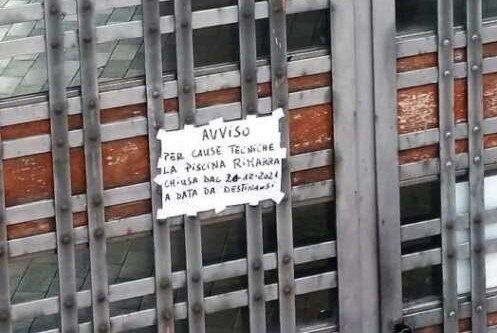 AVVISO
PER CAUSE TECNICHE
LA PISCINA RIMARRA
CHIUSA DAL 20-12-2021
A DATA DA DESTINARSI